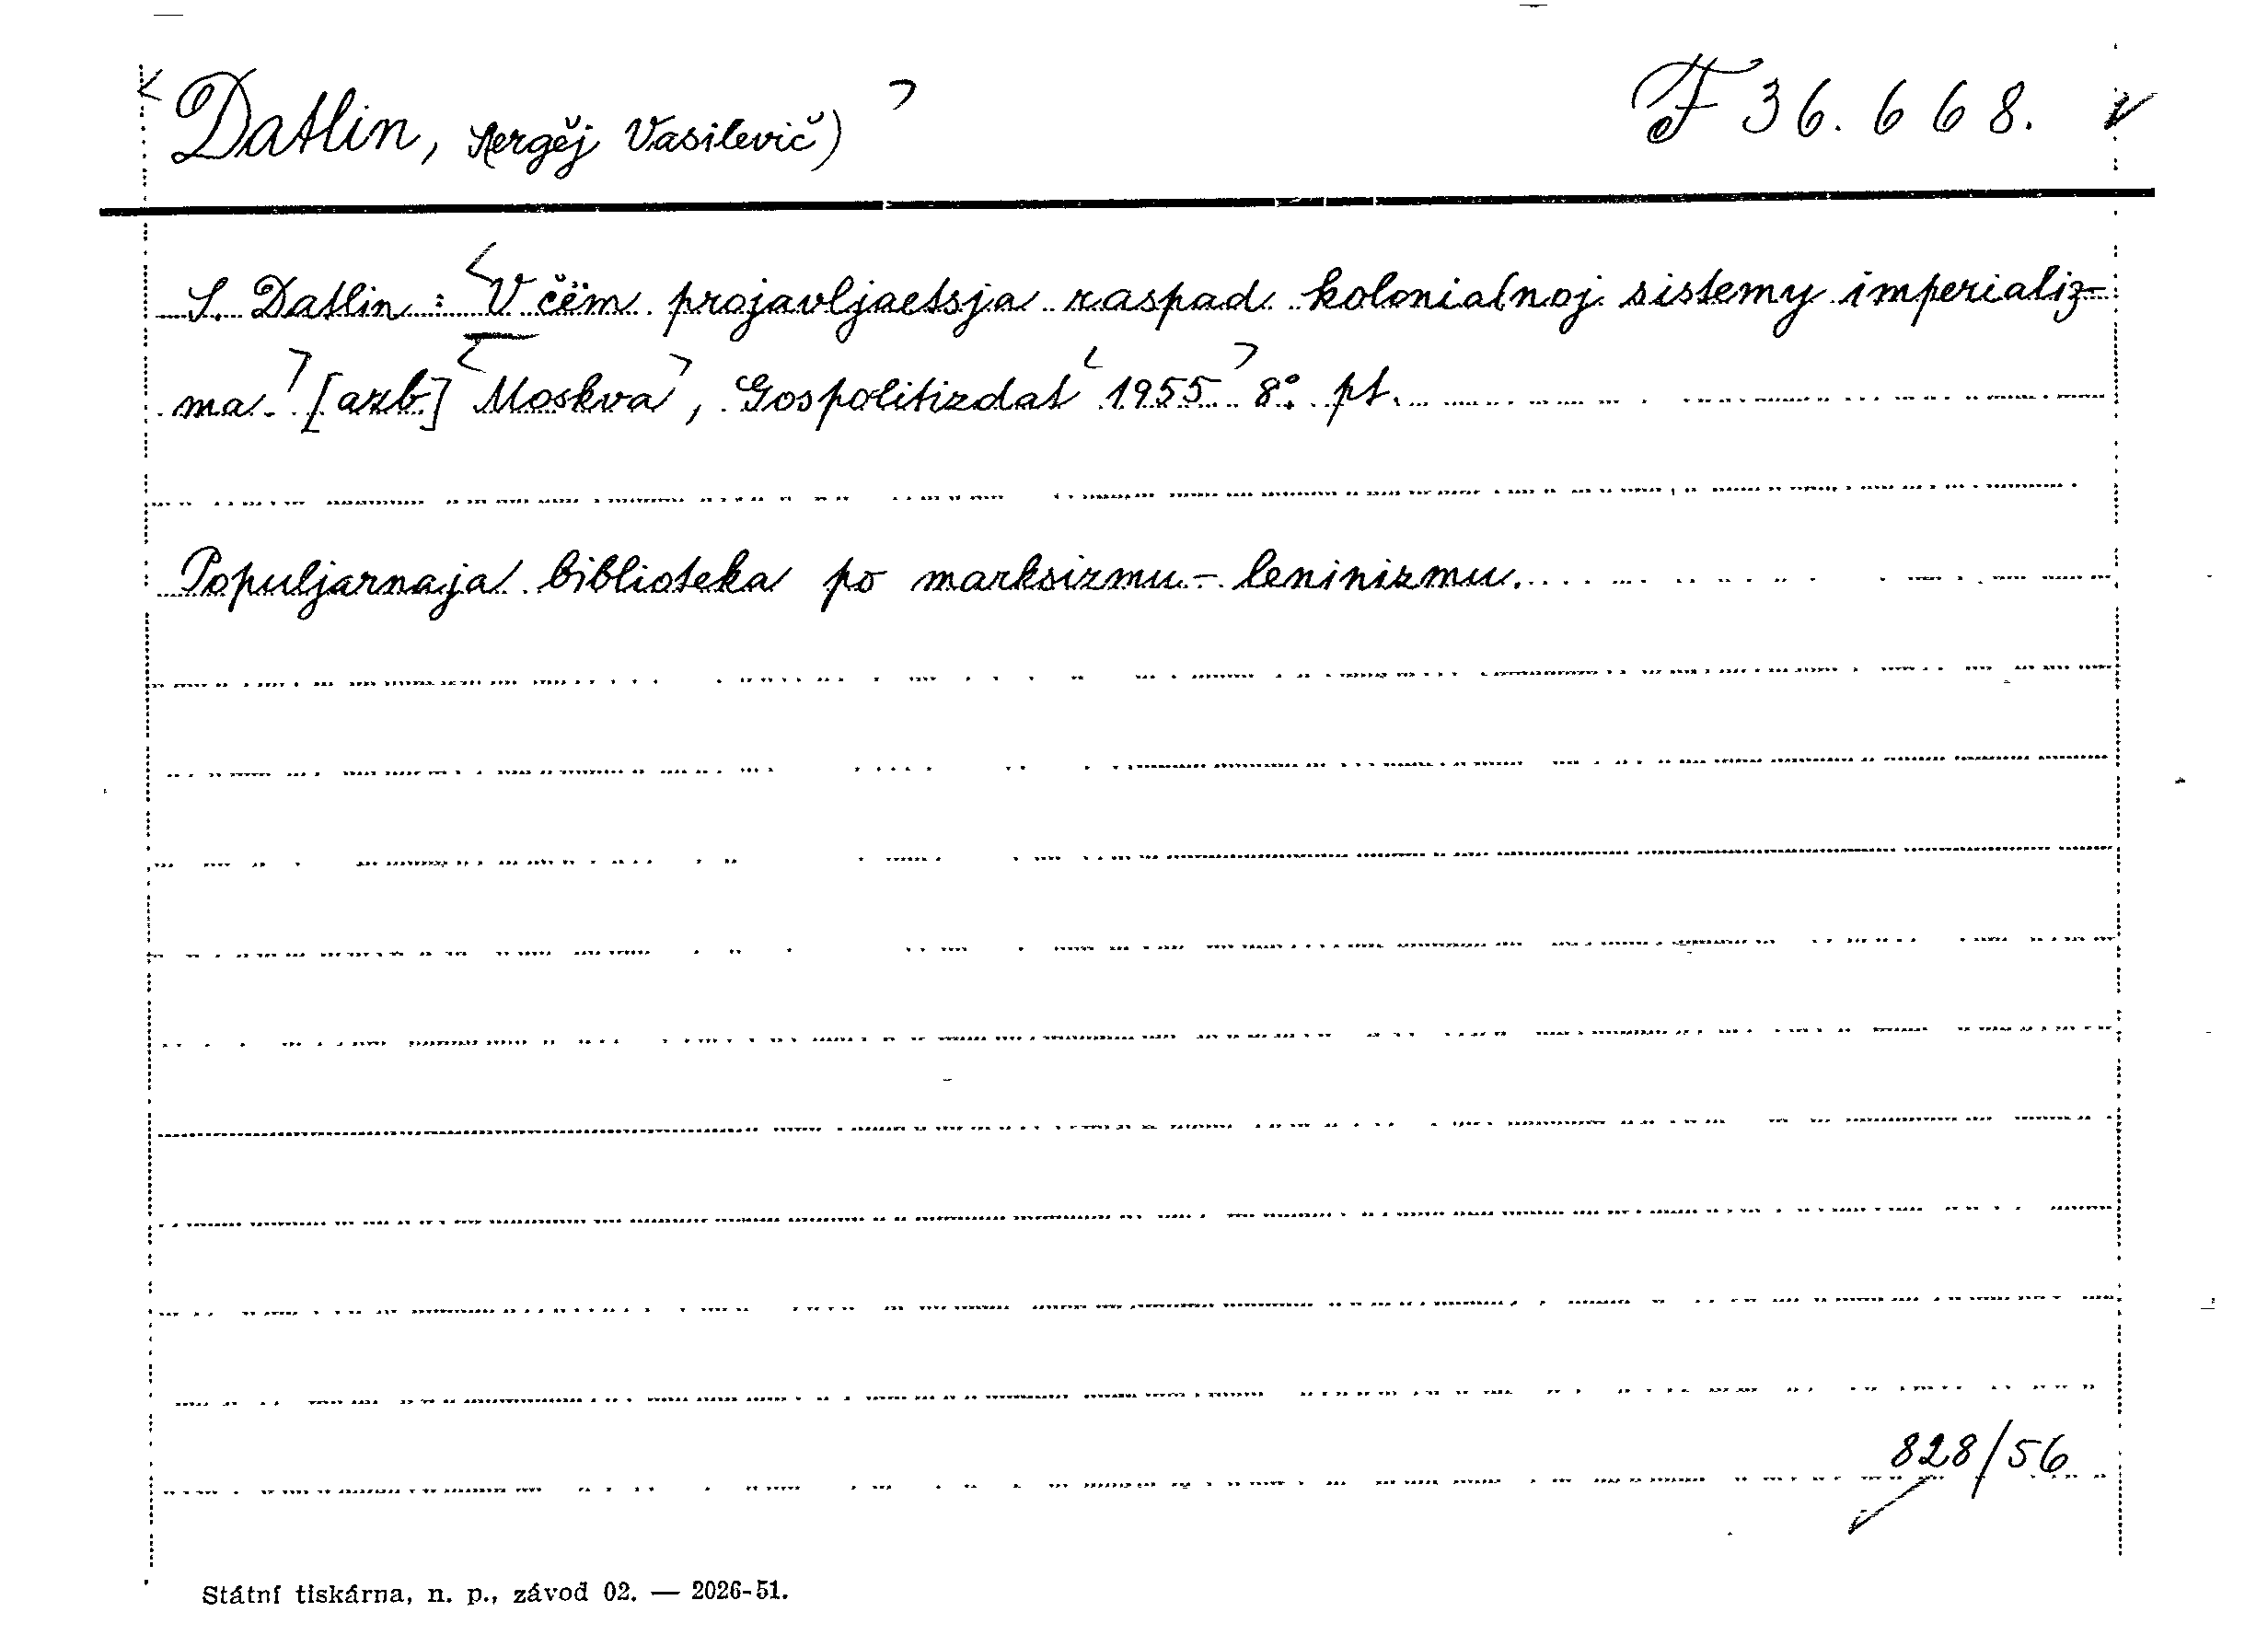 Datlin, Sergěj Vasilevič) F 36.668.
S. Datlin: V čëm projavljaetsja raspad kolonialnoj sistemy imperializ-
ma. [azb] Moskva, Gospolitizdat 1955 8° pt.
Populjarnaja biblioteka po marksizmu-leninizmu.
828/56
Státní tiskárna, n. p., závod 02. — 2026-51.